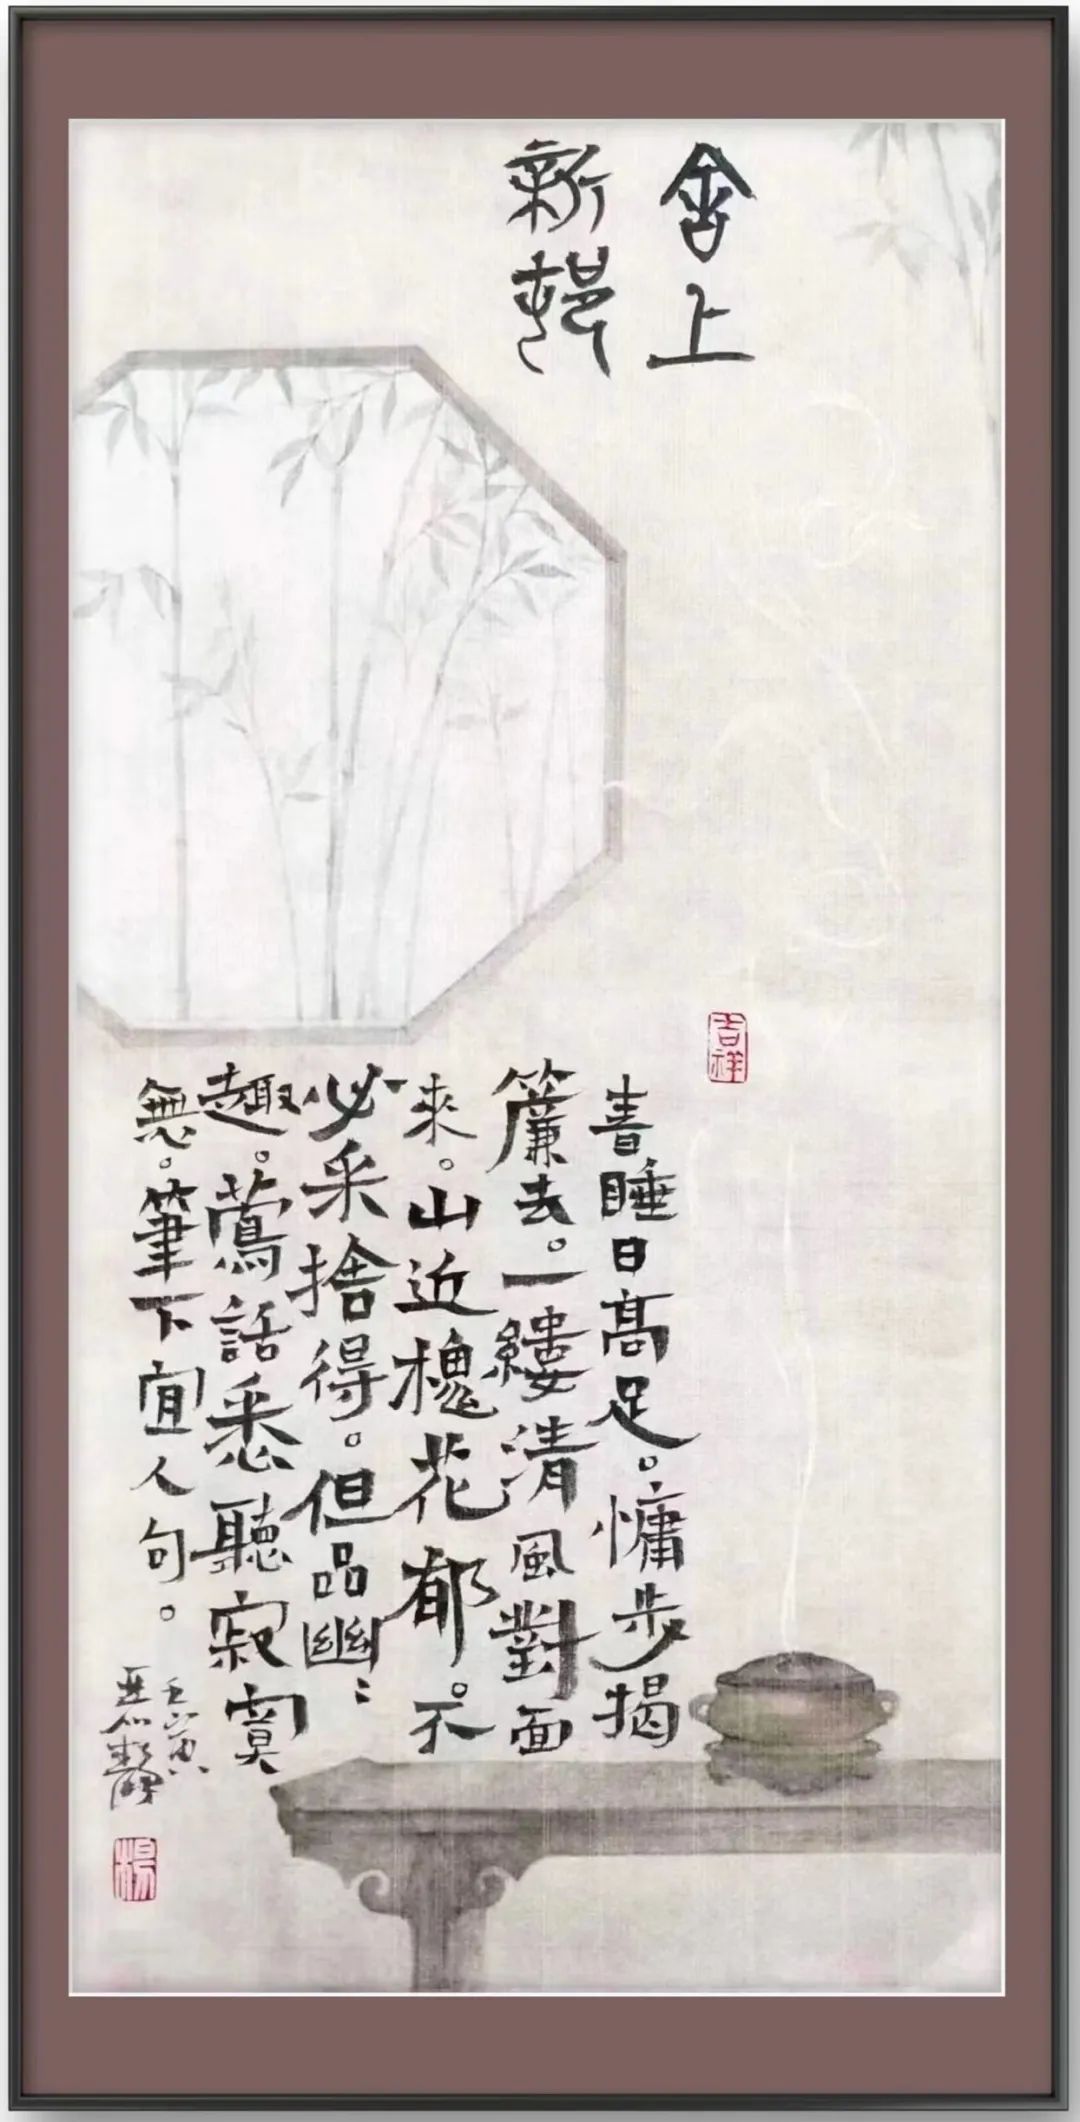 舍上
新邨
吉祥
春睡日高足。慵步揭
簾去。一縷清風對面
來。山近槐花郁。不
必采捨得。但品幽〻
趣。鶯話悉聽寂寞
無。筆下宜人句。
壬寅
楊